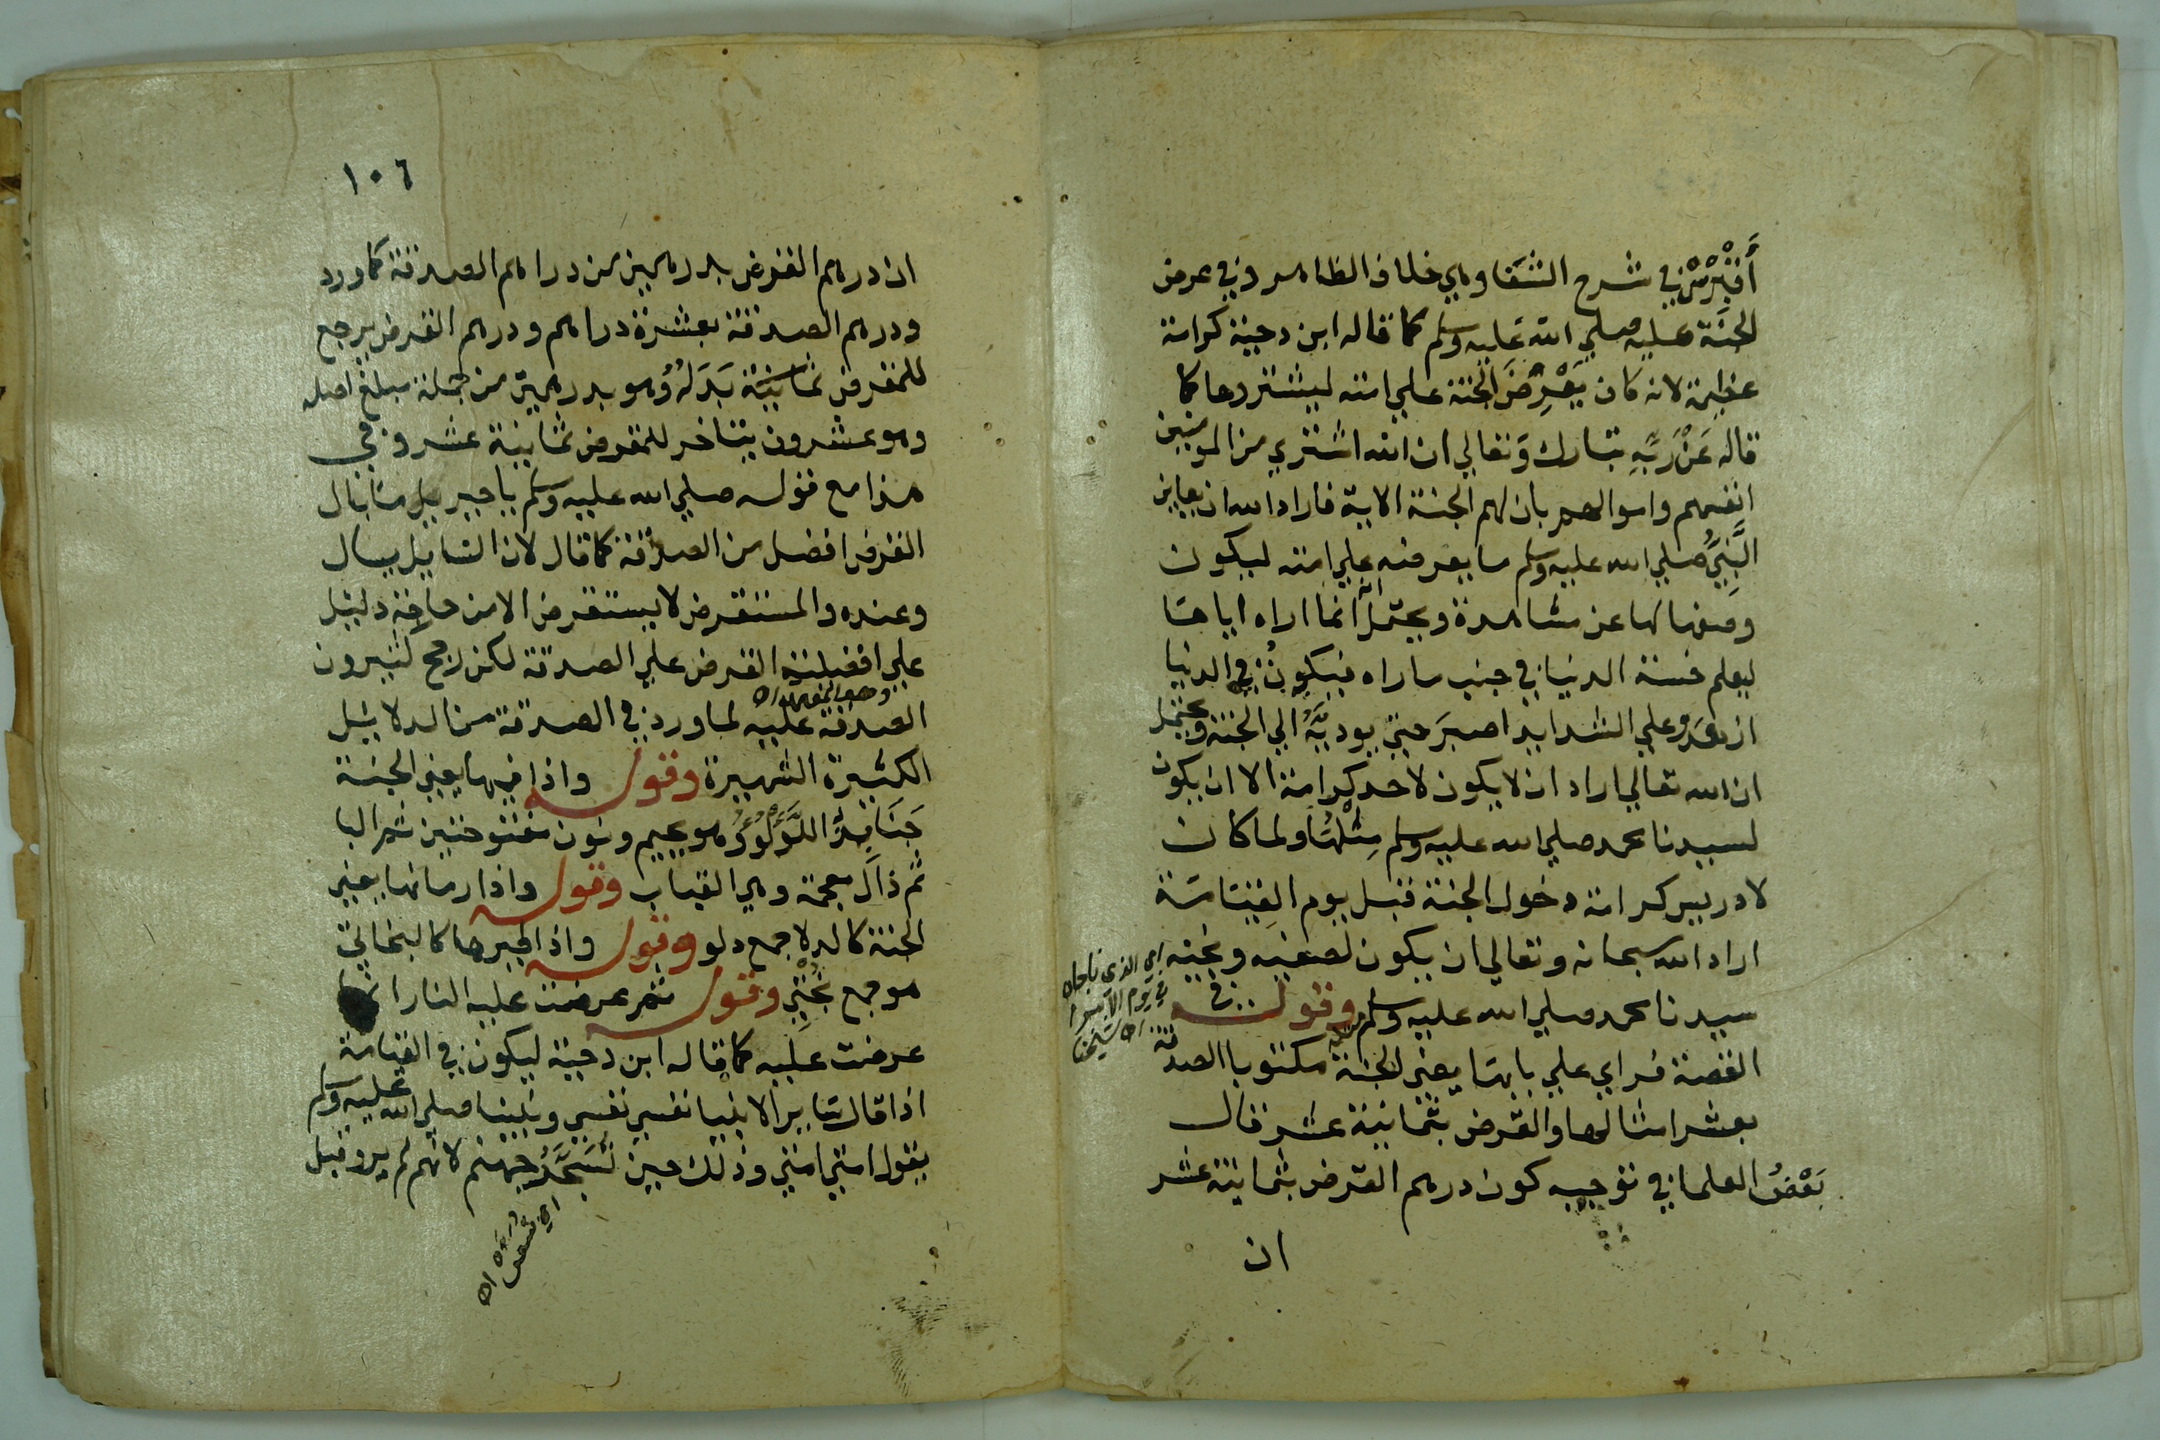 أَقْبَرْسْ في شرح الشفا وهي خلاف الظاهر وفي عرض
الجنَّة عليه صلي الله عليه وسلم كما قاله ابن دحية كرامة
عظيمة لانه كان يَعْرِضُ الجنة علي امته ليشتروها كما
قاله عَنْ رَبِّهِ تبارك وَتعالي ان الله اشتري من المومنين
انفسهم واموالهم بان لهم الجنة الاية فاراد الله ان يعاين
النَّبيُّ صلي الله عليه وسلم ما يعرضه علي امته ليكون
وصفها لها عن مشاهدة ويحتمل انه انما اراه اياها
ليعلم خسة الدنيا في جنب ما راه فيكونُ في الدنيا
ازهد وعلي الشدايد اصبرَ حتي يوديَهُ الي الجنة ويحتمل
ان الله تعالي اراد ان لا يكون لاحد كرامة الا ان يكون
لسيدنا محمد صلي الله عليه وسلم مِثْلُهَا ولما كان
لادريس كرامة دخول الجنة قبل يوم القِيَامَة
اراد الله سبحانه وتعالي ان يكون لصفيه ونجيه
سيدنا محمد صلي الله عليه وسلم وقوله في
القصة فراي علي بابها يعني الجنة مكتوبا الصدقة
بعشر امثالها والقرض بثمانية عشر قال
بَعْضُ العلما في توجيه كون درهم القرض بثمانية عشر
ان
اي الذي ناجاه
١٠٦
ان درهم القرض بدرهمين من دراهم الصدقة كما ورد
ودرهم الصدقة بعشرة دراهم ودرهم القرض يرجع
للمقرض ثمانيَة بَدَلُهُ وهو بدرهمين من جملة مبلغ اصله
وهو عشرون يتاخر للمقرض ثمانية عشر وفي
هذا مع قوله صلي الله عليه وسلم يا جبريل ما بال
القرض افضل من الصدقة كما قال لان السايل يسال
وعنده والمستقرض لا يستقرض الا من حاجة دليل
علي افضلية القرض علي الصدقة لكن رجح كثيرون
الصدقة عليه لما ورد في الصدقة من الدلايل
وهو المعتمد اه
الكثيرة الشهيرة وقوله واذا فيها يعني الجنة
جَنَابِذُ اللُّؤلُؤُ وهو بجيم ونون مفتوحتين ثم البا
ثم ذال معجمة وهي القباب وقوله واذا رمانها يعني
الجنة كالدلا جمع دلو وقوله واذا طيرها كالبخاتي
هو جمع بُخْتِي وقوله ثم عرضت عليه النار انما
عرضت عليه كما قاله ابن دحية ليكون في القيامة
اذا قال ساير الانبيا نفسي نفسي ونبينا صلي الله عليه وسلم
يقول امتي امتي وذلك حين تُسَجَّرُ جهنم لانهم لم يروا قبل